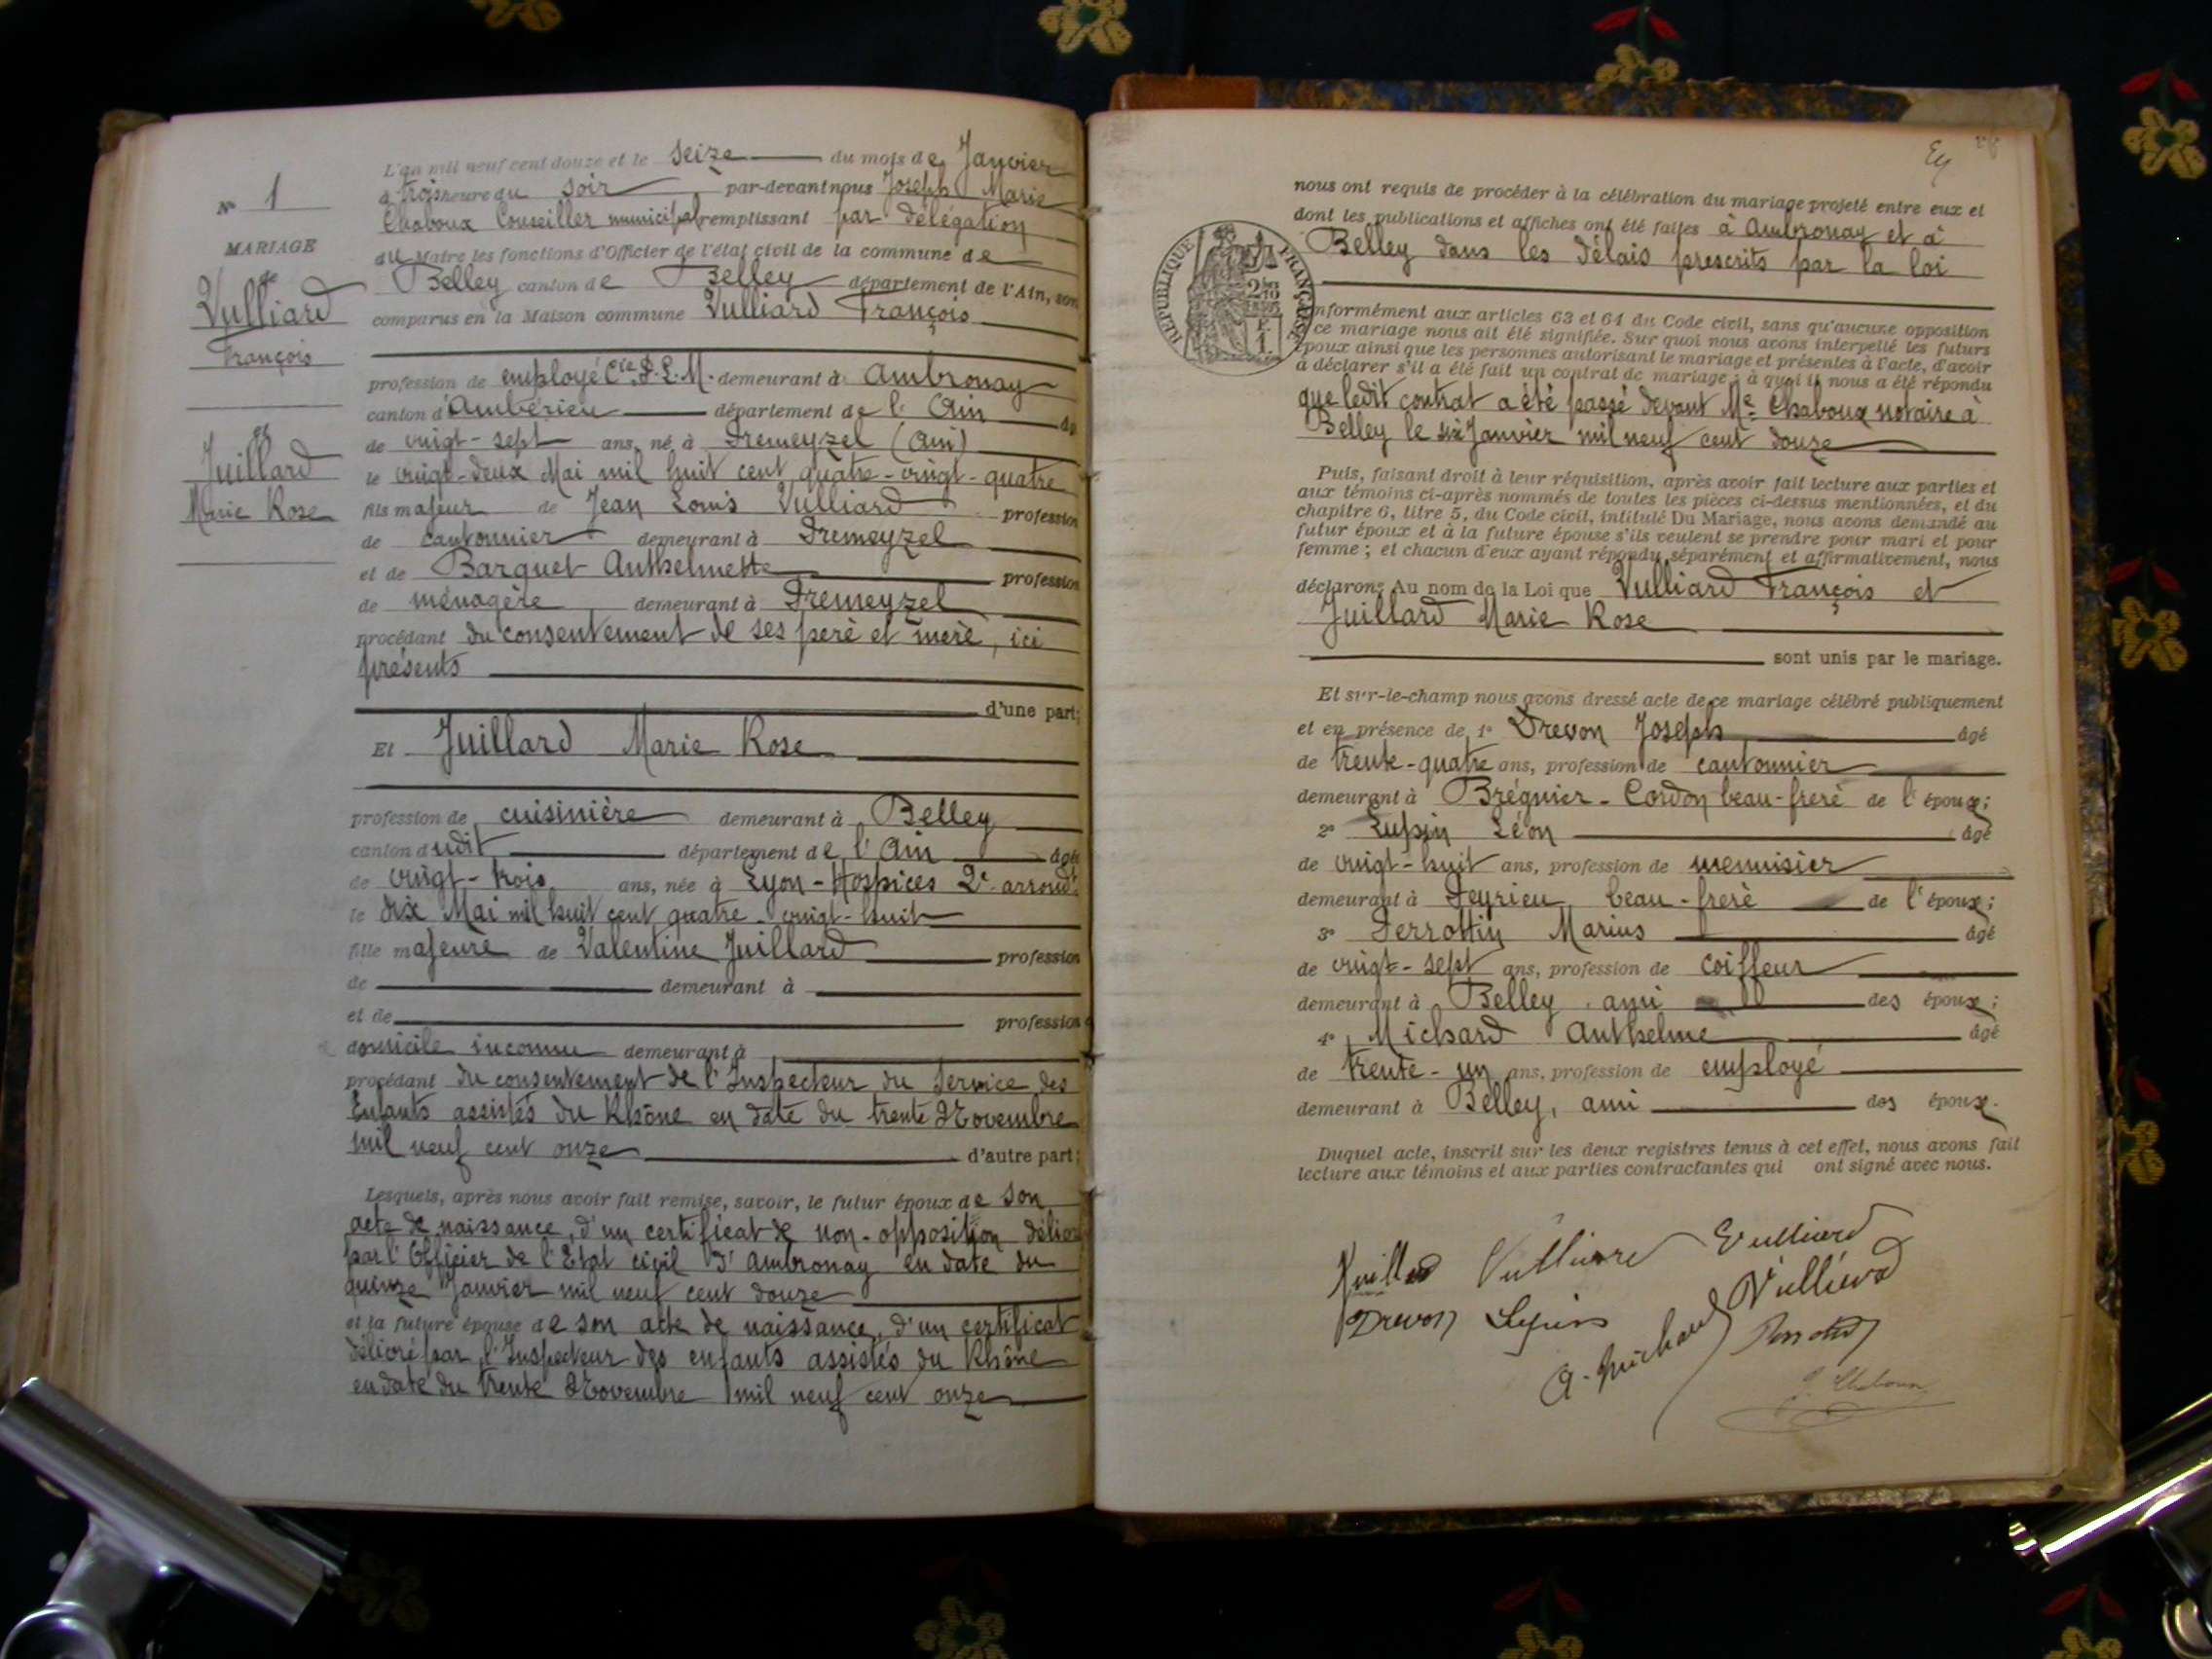 L'an mil neuf cent douze et le seize du mois de Janvier
à trois heure du soir par-devant nous Joseph Marie
Chaboux Conseiller municipal remplissant par délégation
du Maire les fonctions d'Officier de l'état civil de la commune de
Belley canton de Belley département de l'Ain, son
comparus en la Maison commune Vulliard François
profession de employé Cie P. L. M. demeurant à Ambronay
canton d'Ambérieu département de l'Ain âg
de vingt-sept ans, né à Premeyzel (Ain)
le vingt-deux Mai mil huit cent quatre-vingt-quatre
fils majeur de Jean Louis Vulliard profession
de cantonnier demeurant à Premeyzel
et de Barquet Anthelmette profession
de ménagère demeurant à Premeyzel
procédant du consentement de ses père et mère, ici
présents
d'une part;
Et Juillard Marie Rose
profession de cuisinière demeurant à Belley
canton dudit département de l'Ain âgée
de vingt-trois ans, née à Lyon-Hospices 2e arrondt.
le dix Mai mil huit cent quatre-vingt-huit
fille majeure de Valentine Juillard profession
de demeurant à
et de profession
domicile inconnu demeurant à
procédant du consentement de l'Inspecteur du Service des
Enfants assistés du Rhône en date du trente Novembre
mil neuf cent onze d'autre part;
Lesquels, après nous avoir fait remise, savoir, le futur époux de son
acte de naissance, d'un certificat de non-opposition délivré
par l'Officier de l'Etat civil d'Ambronay en date du
quinze Janvier mil neuf cent douze
et la future épouse de son acte de naissance, d'un certificat
délivré par l'Inspecteur des enfants assistés du Rhône
en date du trente Novembre mil neuf cent onze
No 1
MARIAGE
de
Vulliard
François
et
Juillard
Marie Rose
nous ont requis de procéder à la célébration du mariage projeté entre eux et
dont les publications et affiches ont été faites à Ambronay et à
Belley dans les délais prescrits par la loi
RÉPUBLIQUE FRANÇAISE
nformément aux articles 63 et 64 du Code civil, sans qu'aucune opposition
ce mariage nous ait été signifiée. Sur quoi nous avons interpellé les futurs
époux ainsi que les personnes autorisant le mariage et présentes à l'acte, d'avoir
à déclarer s'il a été fait un contrat de mariage; à quoi il nous a été répondu
que ledit contrat a été passé devant Me Chaboux notaire à
Belley le six Janvier mil neuf cent douze
Puis, faisant droit à leur réquisition, après avoir fait lecture aux parties et
aux témoins ci-après nommés de toutes les pièces ci-dessus mentionnées, et du
chapitre 6, titre 5, du Code civil, intitulé Du Mariage, nous avons demandé au
futur époux et à la future épouse s'ils veulent se prendre pour mari et pour
femme; et chacun d'eux ayant répondu séparément et affirmativement, nous
déclarons Au nom de la Loi que Vulliard François et
Juillard Marie Rose
sont unis par le mariage.
Et sur-le-champ nous avons dressé acte de ce mariage célébré publiquement
et en présence de 1° Drevon Joseph âgé
de trente-quatre ans, profession de cantonnier
demeurant à Brégnier-Cordon beau-frère de l'époux;
2° Lupin Léon âgé
de vingt-huit ans, profession de menuisier
demeurant à Peyrieu beau-frère de l'époux;
3° Perrottin Marius âgé
de vingt-sept ans, profession de coiffeur
demeurant à Belley, ami des époux;
4° Michard Anthelme âgé
de trente-un ans, profession de employé
demeurant à Belley, ami des époux.
Duquel acte, inscrit sur les deux registres tenus à cet effet, nous avons fait
lecture aux témoins et aux parties contractantes qui ont signé avec nous.
Juillard Vulliard Vulliard
Drevon Lupin Vulliard
A. Michard